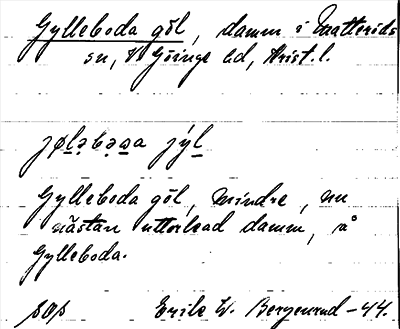 Gylleboda göl, damm i Matteröds
sn, V. Göinge hd, Krist. l.
jøləbəɷa jýl
Gylleboda göl, mindre, nu
nästan uttorkad damm, å
Gylleboda.
Erik W. Bergenrud – 44.